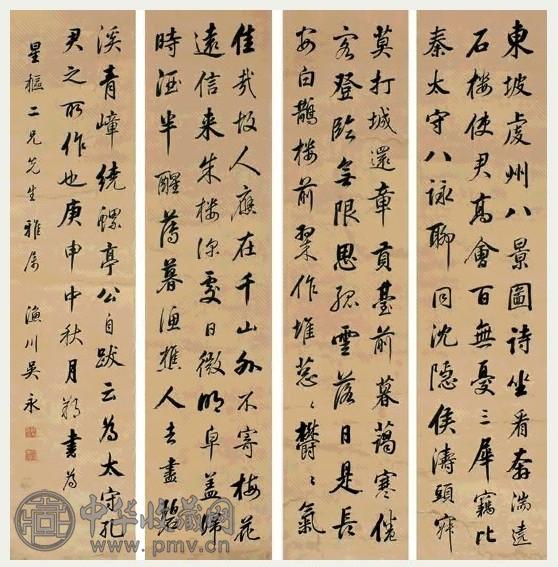 東坡虔州八景圖詩坐看奔湍遶
石樓使君高會百無憂三犀竊比
秦太守八詠聊同沈隱侯濤頭寂
莫打城還章貢臺前暮藹寒倦
客登臨無限思孤雲落日是長
安白鵲樓前翠作堆葱〻鬱〻氣
佳哉故人應在千山外不寄梅花
遠信来朱樓深處日微明皁盖歸
時酒半醒薄暮漁樵人去盡碧
溪青嶂繞螺亭公自跋云為太守孔
君之所作也庚申中秋月節書為
星樞二兄先生雅属 漁川吳永
中华收藏网
www.pmv.cn